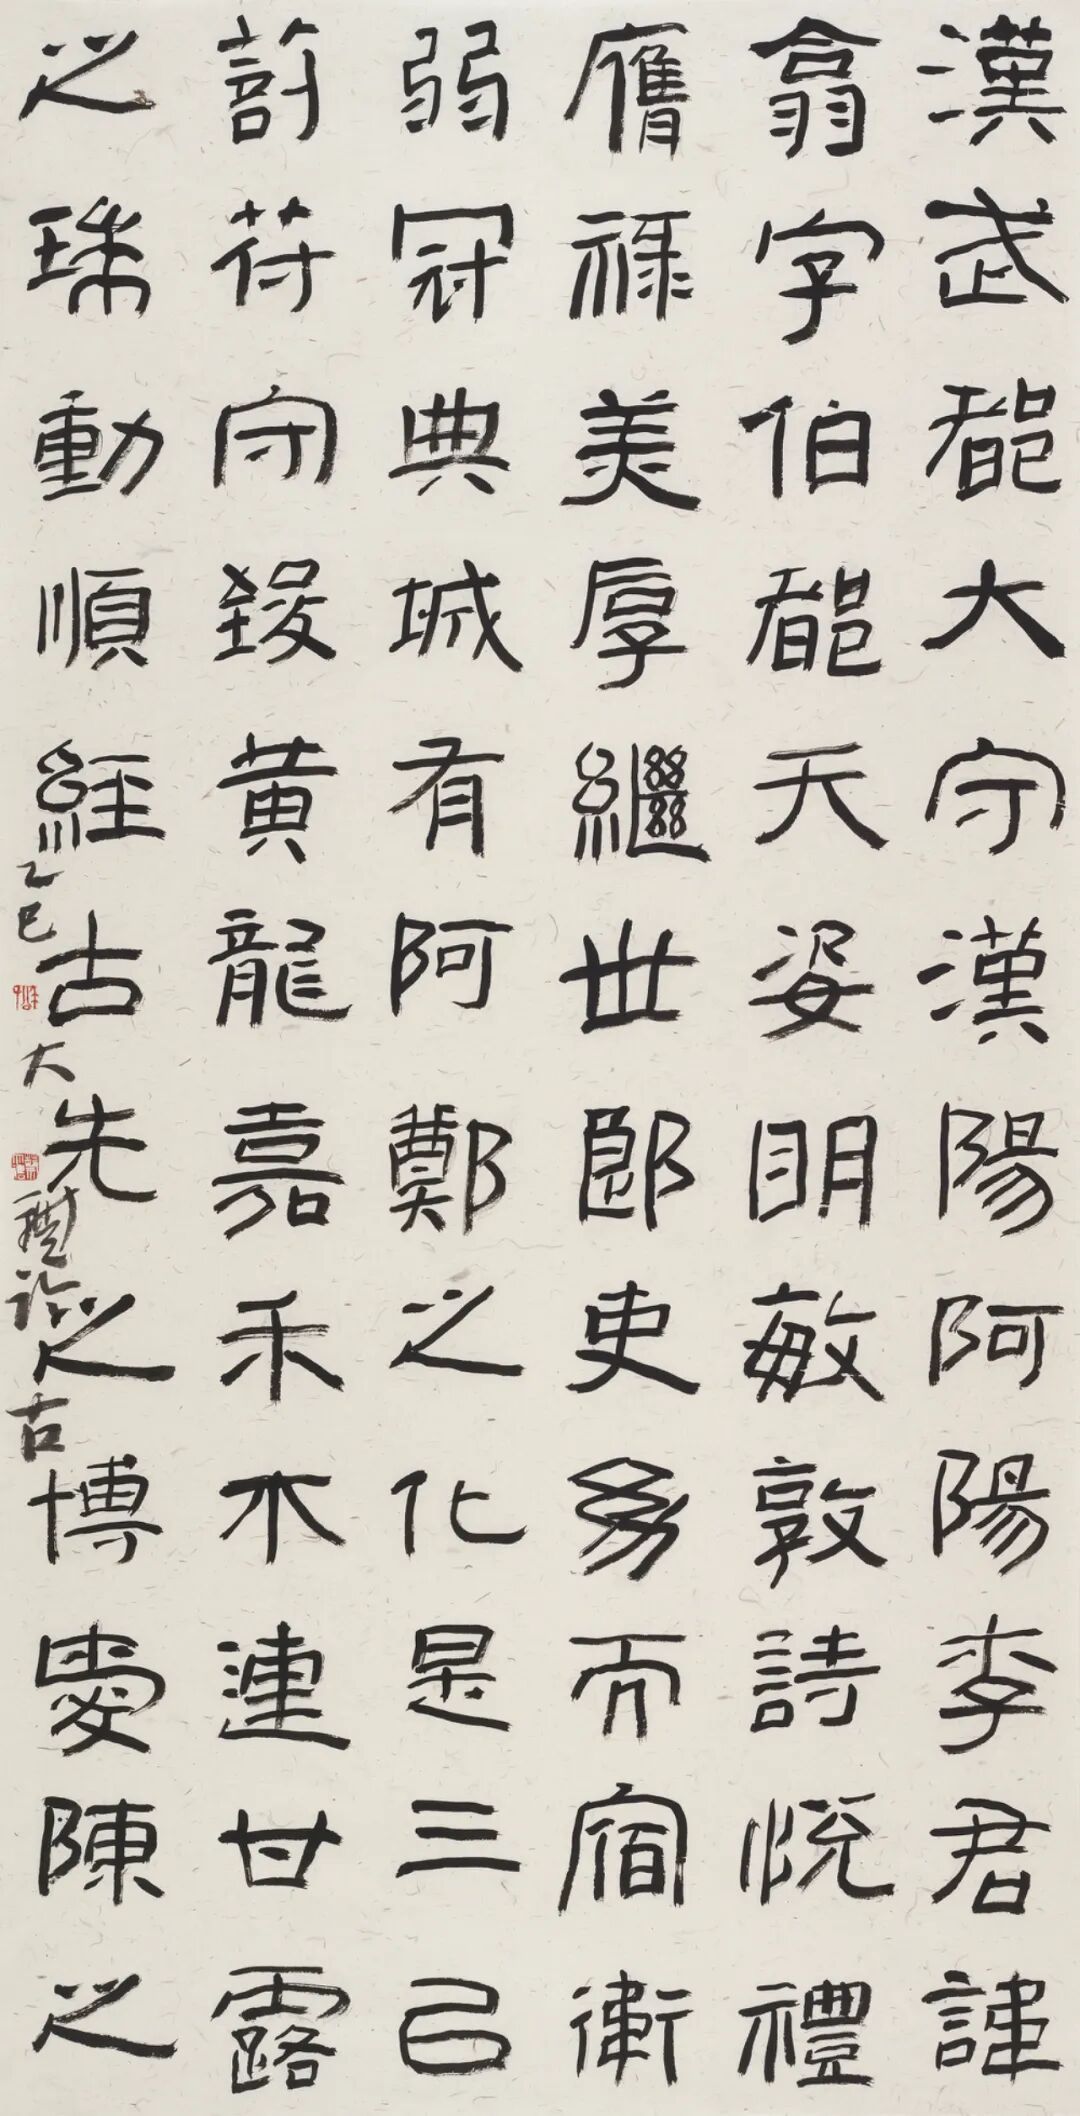 漢武都大守漢陽阿陽李君諱
翕字伯都天姿明敏敦詩悅禮
膺祿美厚繼世郎吏幼而宿衛
弱冠典城有阿鄭之化是三㠯
莂符守致黃龍嘉禾木連甘露
之珠動順經古先之博愛陳之
乙巳大
古